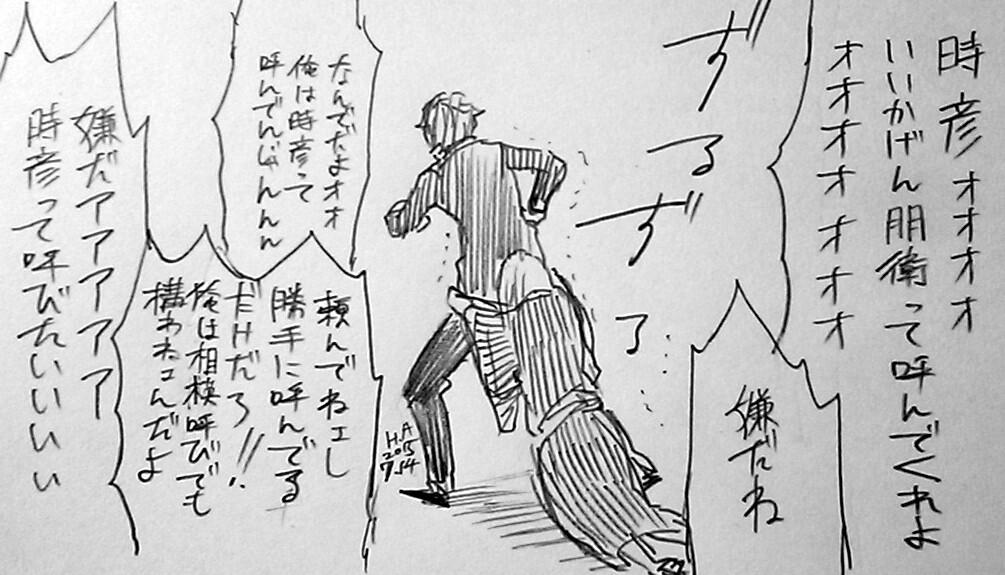 時彦ォオオオオ
いいかげん朋衛って呼んでくれよ
オオオオオオオ
嫌だね
ずるずる
なんでだよオオ
俺は時彦って
呼んでんじゃんんん
頼んでねェし
勝手に呼んでる
だけだろ!!
俺は相模呼びでも
構わねェんだよ
嫌だアアアアア
時彦って呼びたいいいい
H.A
2015
7.14